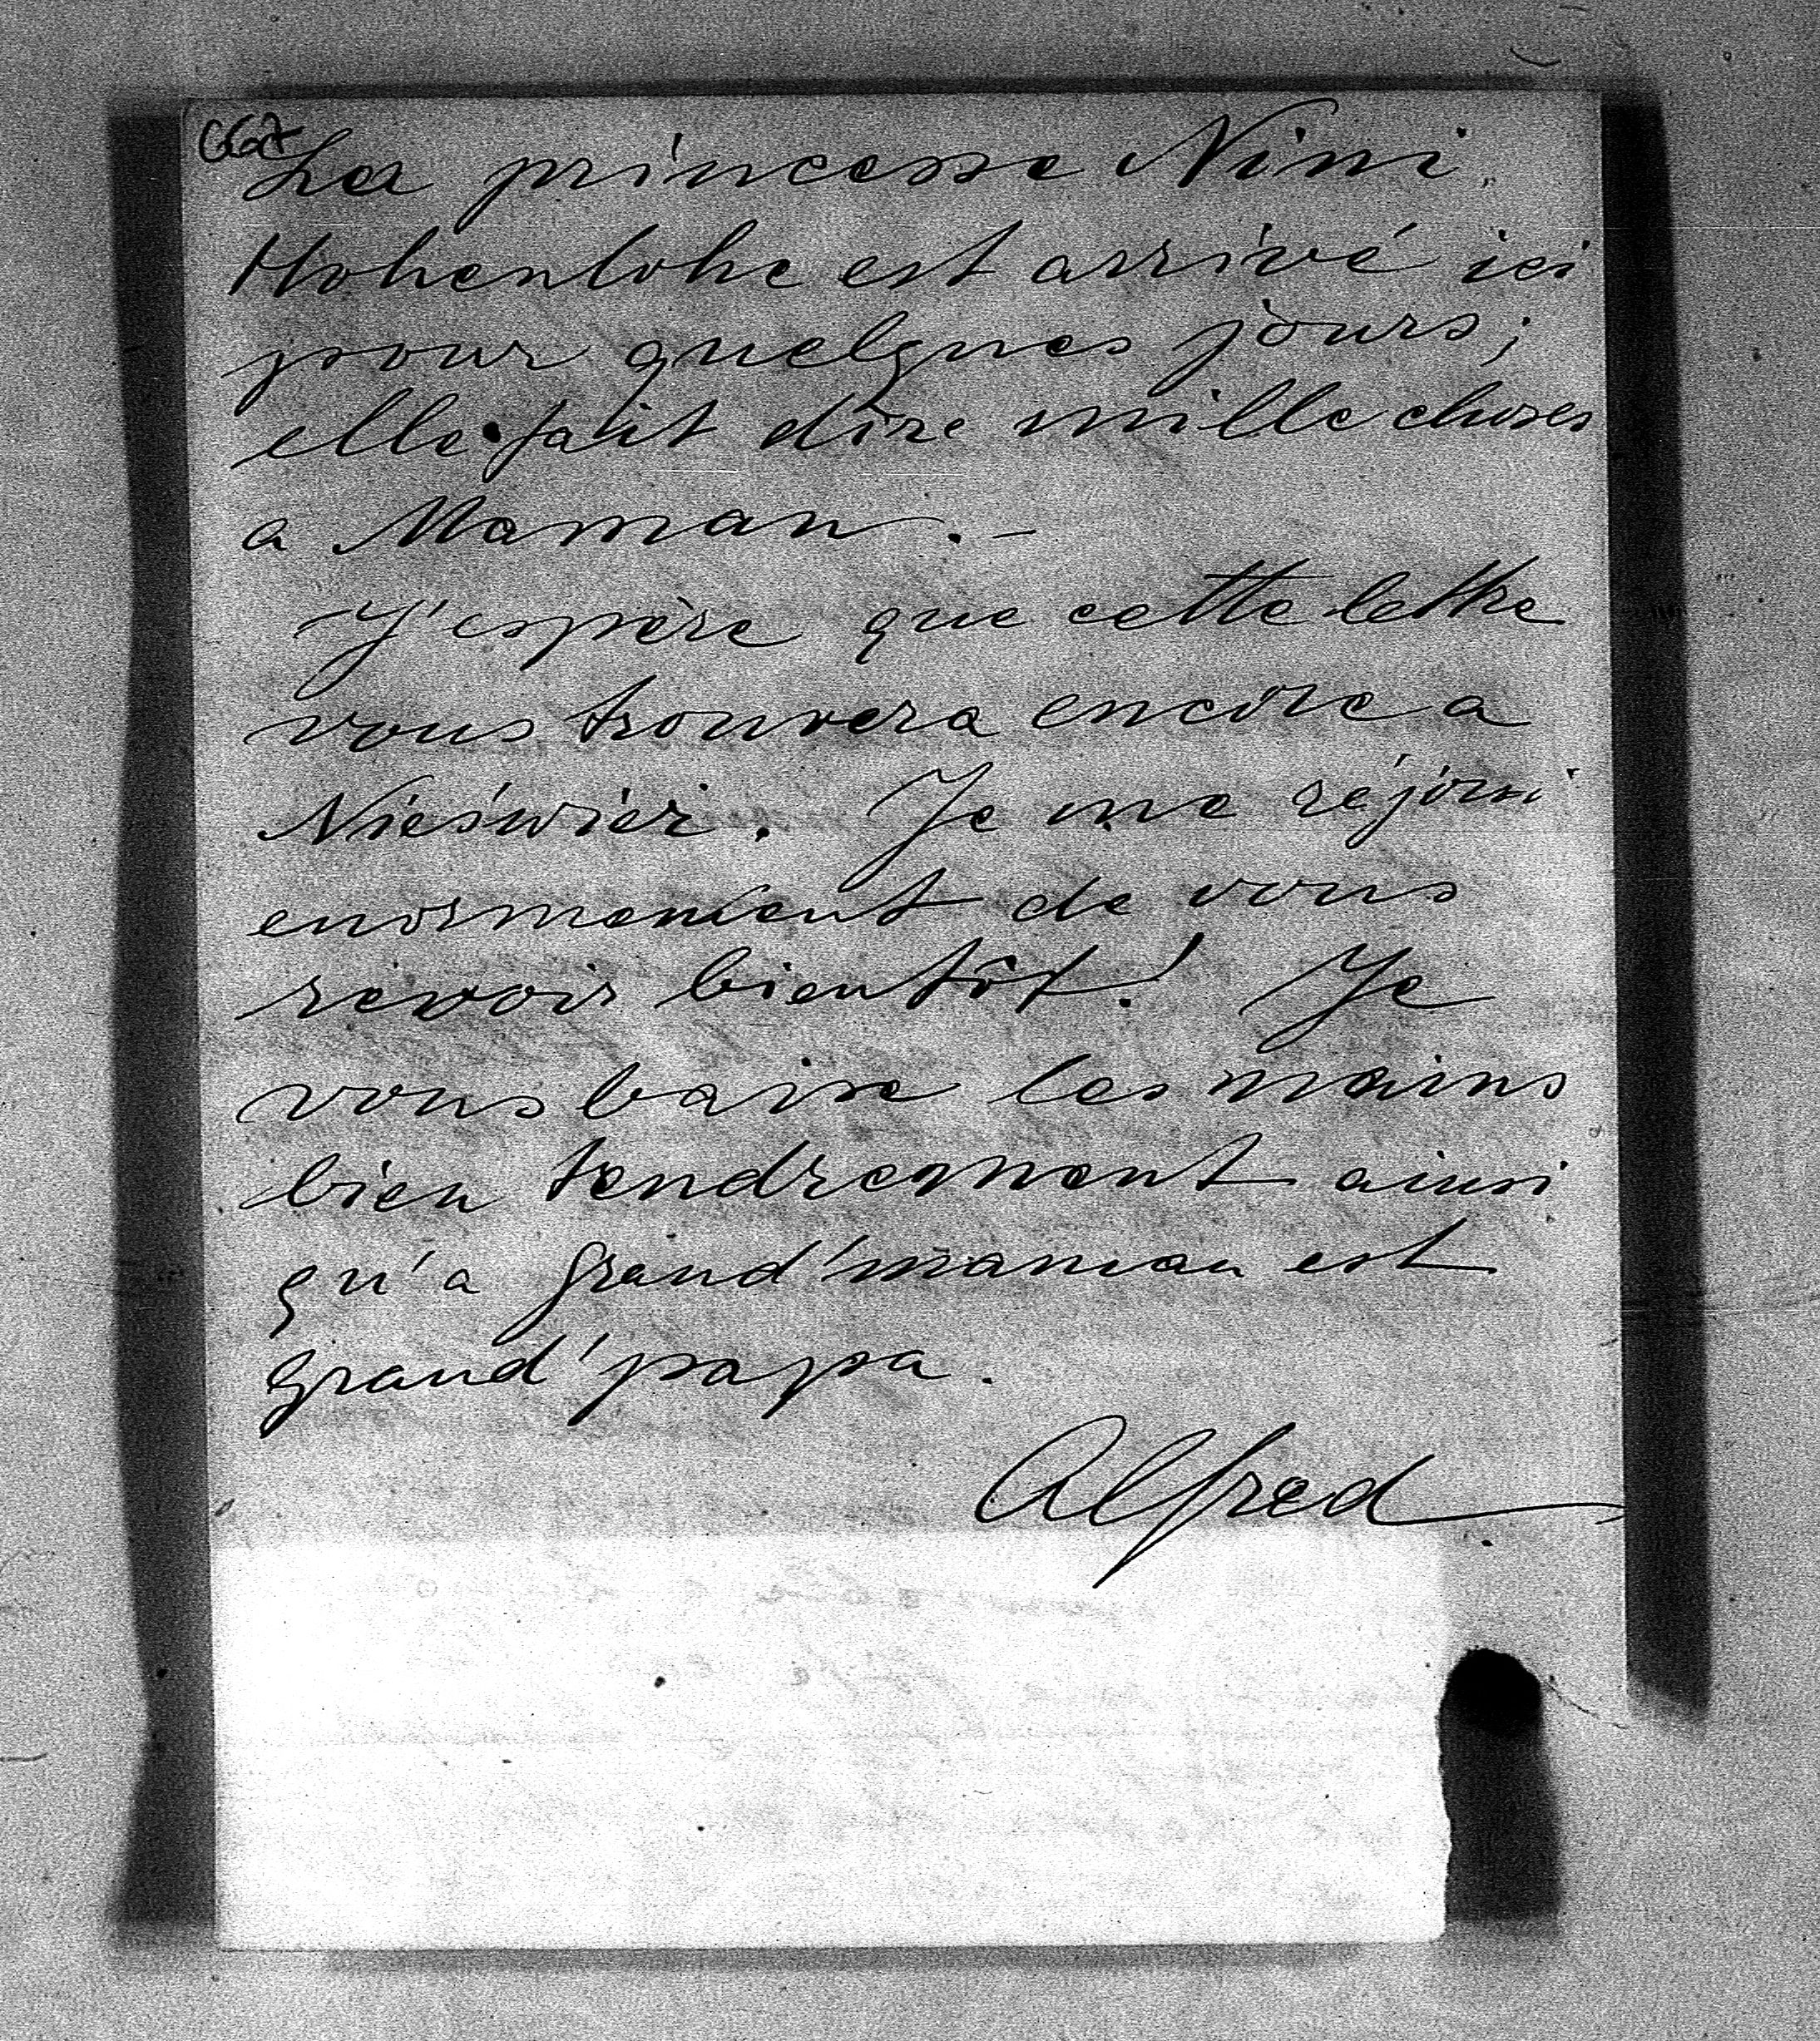 667
La princesse Nini
Hohenlohe est arrivé ici
pour quelques jours;
elle fait dire mille choses
a Maman. -
J'espère que cette lettre
vous trouvera encore a
Nieświez. Je me réjoui
enormement de vous
revoir bientôt! Je
vous baise les mains
bien tendrement ainsi
qu'a grand'maman est
grand'papa.
Alfred